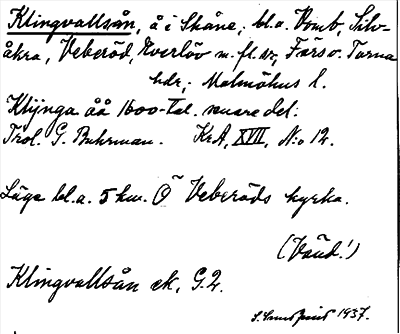 Klingvallsån, å i Skåne; bl.a. Vomb, Silv-
åkra, Veberöd, Everlöv m.fl. sr, Färs o. Torna
hdr; Malmöhus l.
Klijnga åå 1600-tal. senare del.
Trol. G. Buhrman. KrA, XVII, N:o 12.
Läge bl.a. 5 km. Ö Veberöds kyrka.
(Vänd!)
Klingvallsån ek, G.2.
1937.